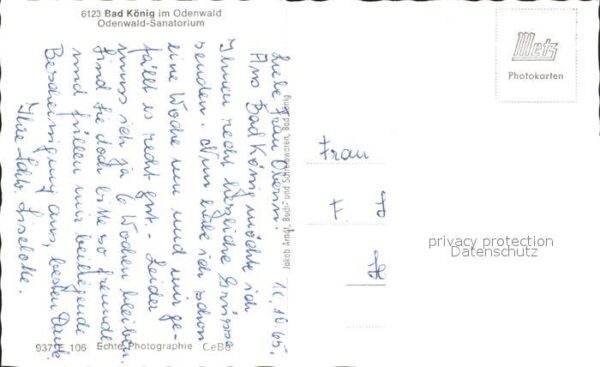 6123 Bad König im Odenwald
Odenwald-Sanatorium
11.10.65.
Liebe Frau
Aus Bad König möchte ich
Ihnen recht herzliche Grüsse
senden. Nun habe ich schon
eine Woche um und mir ge-
fällt es recht gut. - Leider
muss ich ja 6 Wochen bleiben.
Sind Sie doch bitte so freundl.
und füllen mir beiliegende
Bescheinigung aus, besten Dank
Ihre Liselotte.
9371 106 Echte Photographie CeBe
Jakob Arngl, Buch- und Schreibwaren, Bad König
Metz
Photokarten
Frau
F. J
H
privacy protection
Datenschutz